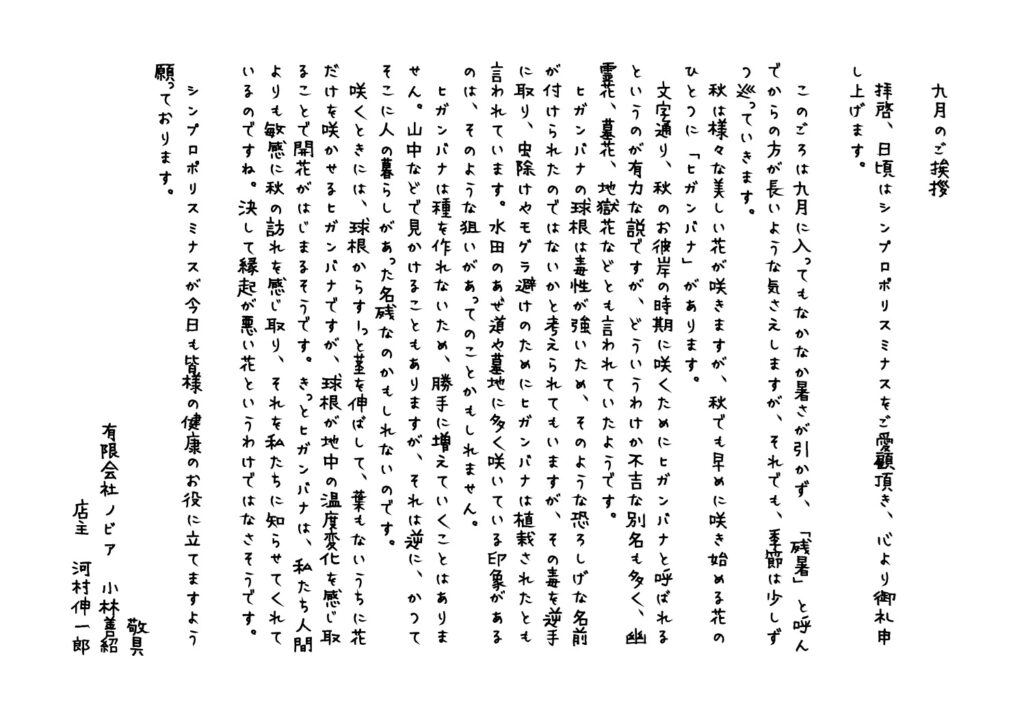 九月のご挨拶
拝啓、日頃はシンプロポリスミナスをご愛顧頂き、心より御礼申
し上げます。
このごろは九月に入ってもなかなか暑さが引かず、「残暑」と呼ん
でからの方が長いような気さえしますが、それでも、季節は少しず
つ巡っていきます。
秋は様々な美しい花が咲きますが、秋でも早めに咲き始める花の
ひとつに「ヒガンバナ」があります。
文字通り、秋のお彼岸の時期に咲くためにヒガンバナと呼ばれる
というのが有力な説ですが、どういうわけか不吉な別名も多く、幽
霊花、墓花、地獄花などとも言われていたようです。
ヒガンバナの球根は毒性が強いため、そのような恐ろしげな名前
が付けられたのではないかと考えられてもいますが、その毒を逆手
に取り、虫除けやモグラ避けのためにヒガンバナは植栽されたとも
言われています。水田のあぜ道や墓地に多く咲いている印象がある
のは、そのような狙いがあってのことかもしれません。
ヒガンバナは種を作れないため、勝手に増えていくことはありま
せん。山中などで見かけることもありますが、それは逆に、かつて
そこに人の暮らしがあった名残なのかもしれないのです。
咲くときには、球根からすーっと茎を伸ばして、葉もないうちに花
だけを咲かせるヒガンバナですが、球根が地中の温度変化を感じ取
ることで開花がはじまるそうです。きっとヒガンバナは、私たち人間
よりも敏感に秋の訪れを感じ取り、それを私たちに知らせてくれて
いるのですね。決して縁起が悪い花というわけではなさそうです。
シンプロポリスミナスが今日も皆様の健康のお役に立てますよう
願っております。
敬具
有限会社ノビア 小林善紹
店主 河村伸一郎